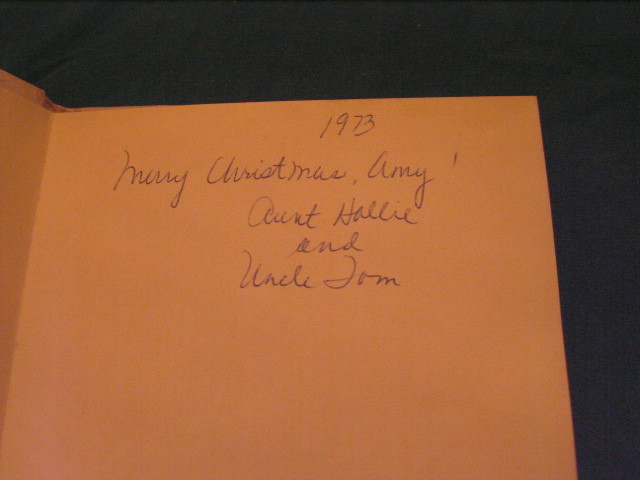 1973
Merry Christmas, Amy!
Aunt Hallie
and
Uncle Tom